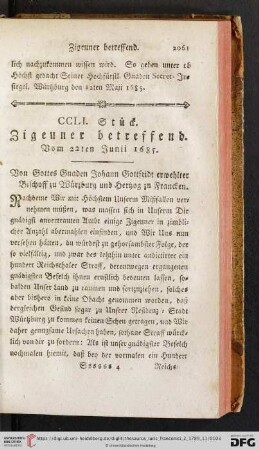 Zigeuner betreffend. 2061
lich nachzukommen wissen wird. So geben unter
Höchst gedacht Seiner Hochfürstl. Gnaden Secret-In-
siegel. Würzburg den Maji
CCLI. Stück.
Zigeuner betreffend.
Vom 22ten Junii 1685.
Von Gottes Gnaden Johann Gottfridt erwehlter
Bischoff zu Würzburg und Hertzog zu Francken.
Nachdeme Wir mit Höchstem Unserm Mißfallen ver-
nehmen müßen, was massen sich in Unserm Dir
gnädigst anvertrauten Ambt einige Zigeuner in zimbli-
cher Anzahl übernachten einfinden, und Wir Uns nun
versehen hätten, du würdest zu gehorsambster Folge, der
so vielfältig, und zwar des letzthin unter andictirter ein
hundert Reichsthaler Straff, derentwegen ergangenen
gnädigsten Befelch ihnen ernstlich bedeuten lassen, so
balden Unser land zu raumen und fortzuziehen, solches
aber bißhero in keine Obacht genommen worden, daß
dergleichen Gesind sogar zu Unserer Residenz-Stadt
Würzburg zu kommen keinen Scheu getragen, und Wir
daher genugsame Ursachen haben, sothane Straff würck-
lich von dir zu fordern: Als ist unser gnädigster Befelch
nochmalen hiemit, daß bey der vormalen ein Hundert
4 Reichs-